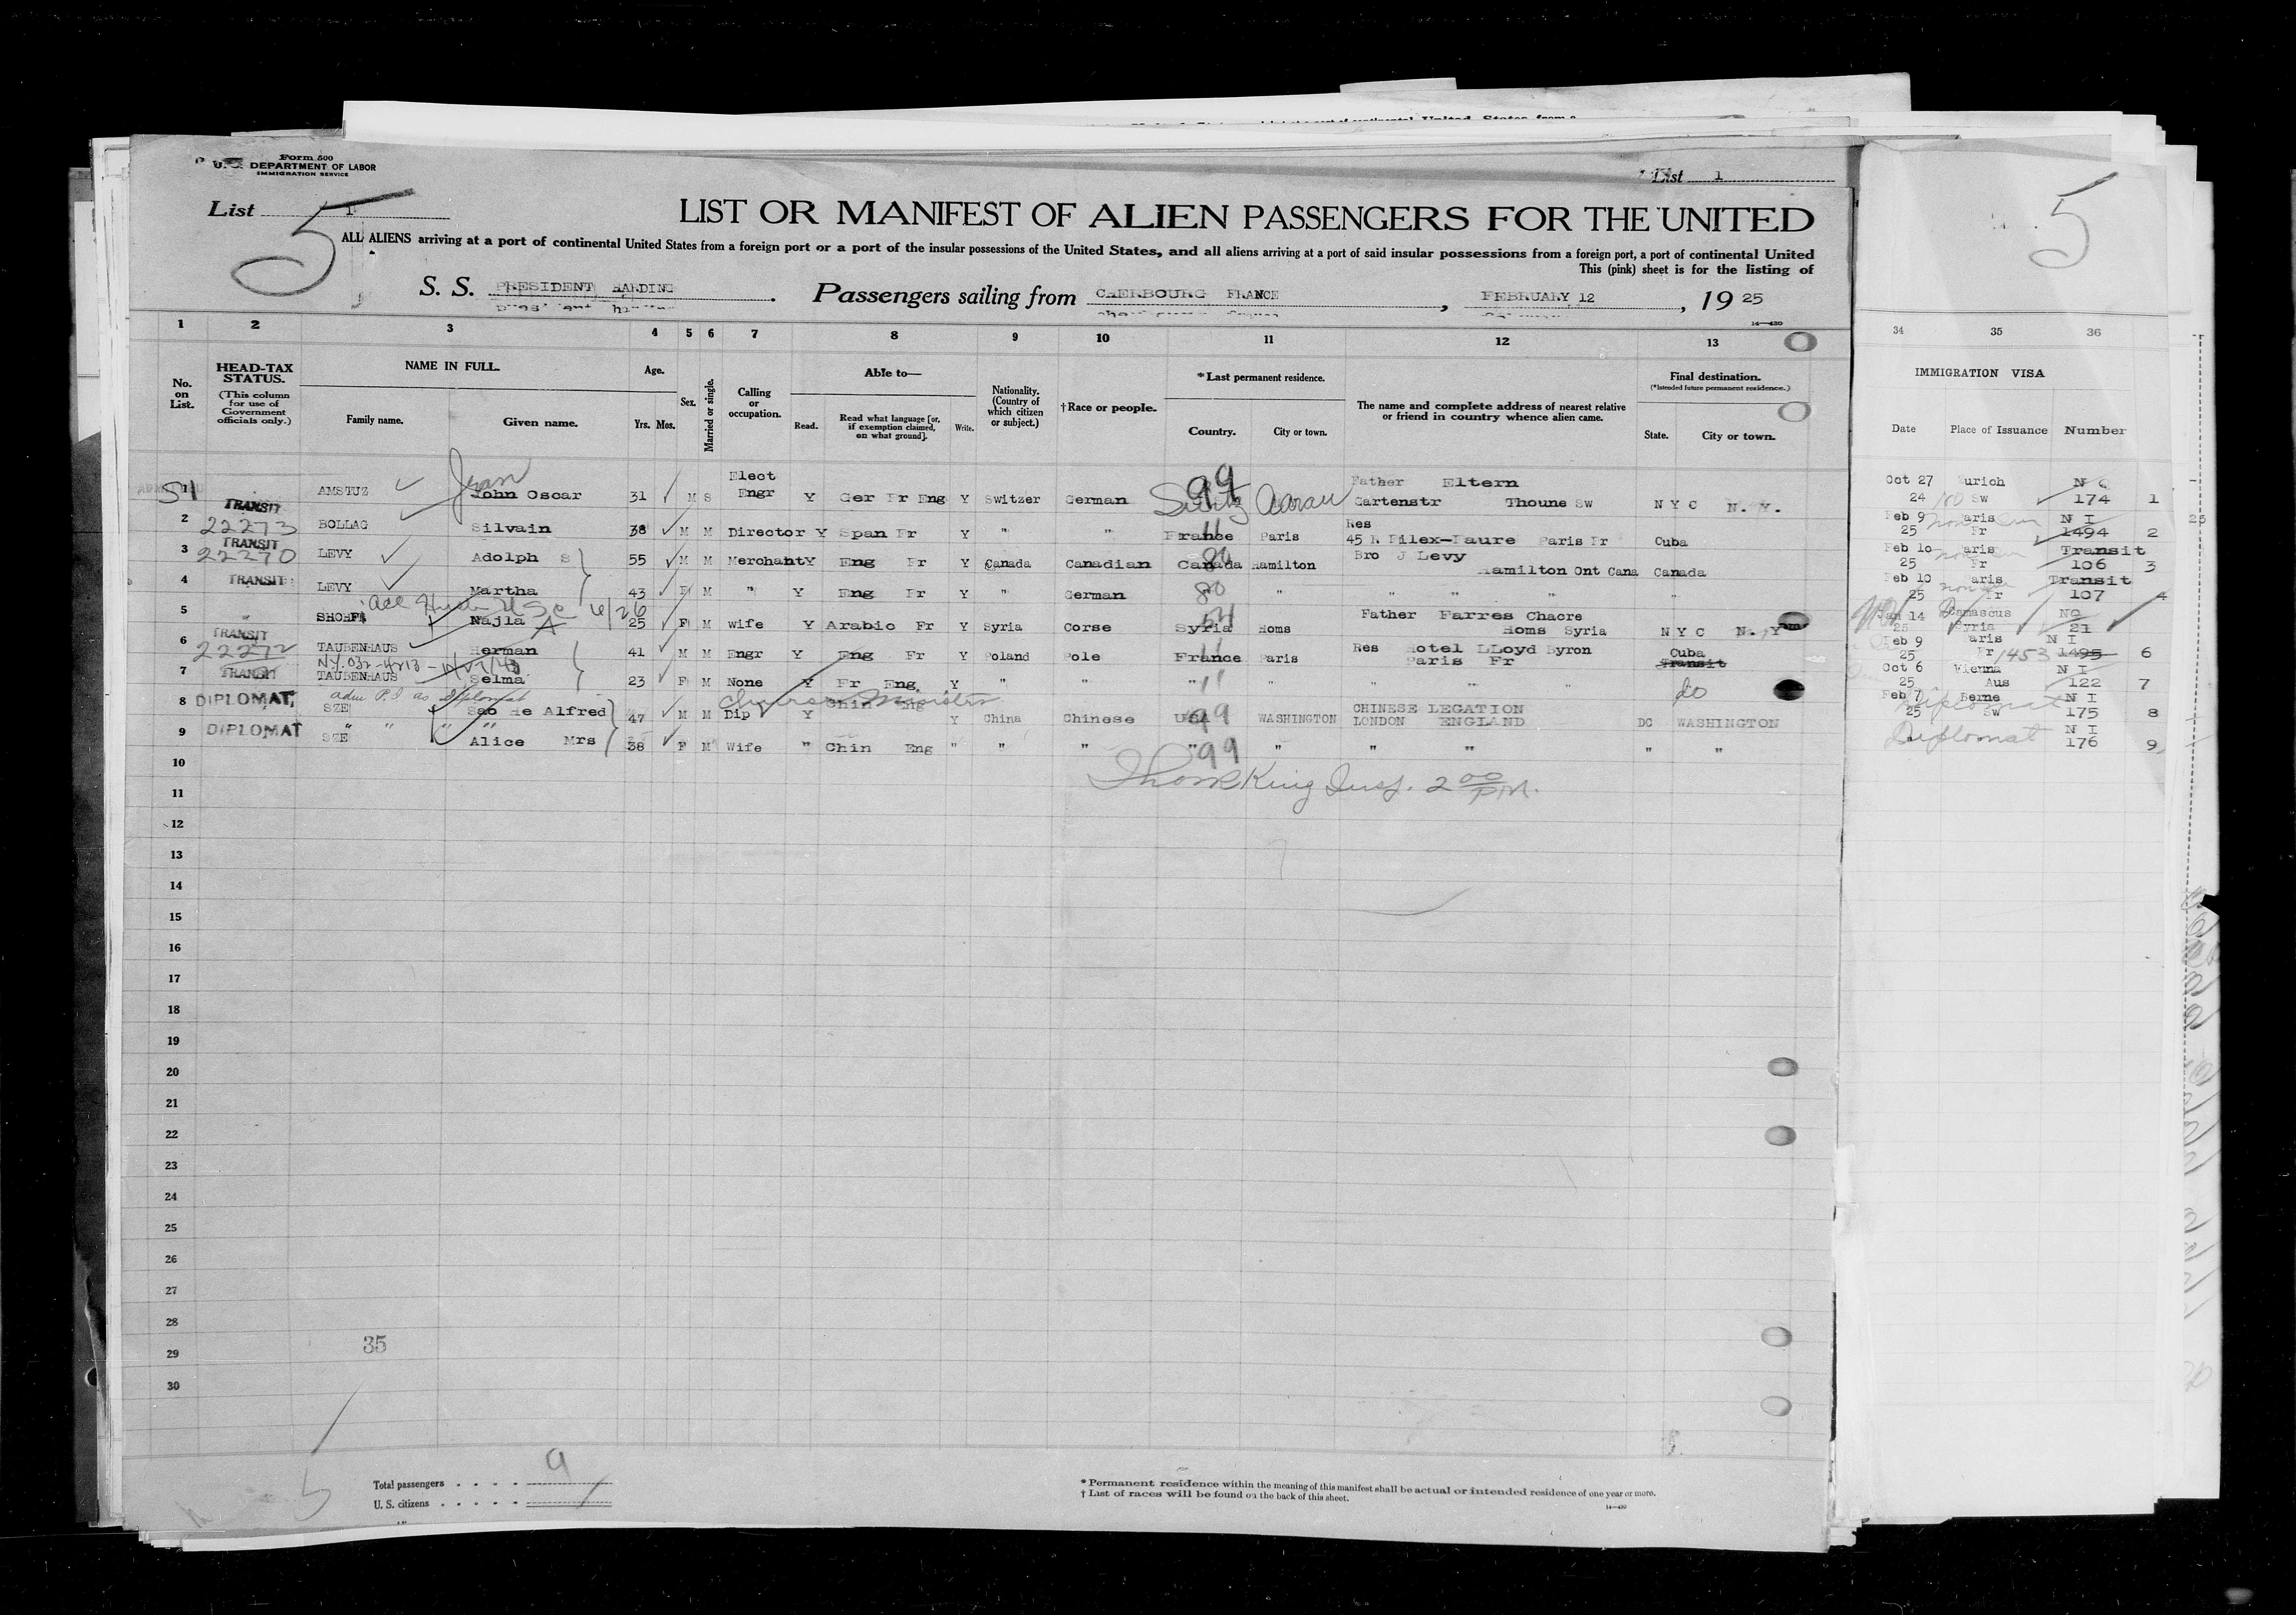 Form 500
U. S. DEPARTMENT OF LABOR
IMMIGRATION SERVICE
List 1
List 1
5
5
LIST OR MANIFEST OF ALIEN PASSENGERS FOR THE UNITED
ALL ALIENS arriving at a port of continental United States from a foreign port or a port of the insular possessions of the United States, and all aliens arriving at a port of said insular possessions from a foreign port, a port of continental United
This (pink) sheet is for the listing of
S. S. PRESIDENT HARDING. Passengers sailing from CHERBOURG FRANCE, FEBRUARY 12, 19 25
14—430
1 2 3 4 5 6 7 8 9 10 11 12 13 34 35 36
No. on List.
HEAD-TAX STATUS.
(This column for use of Government officials only.)
NAME IN FULL.
Family name. Given name.
Age.
Yrs. Mos.
Sex.
Married or single.
Calling or occupation.
Able to—
Read. Read what language [or, if exemption claimed, on what ground]. Write.
Nationality. (Country of which citizen or subject.)
†Race or people.
*Last permanent residence.
Country. City or town.
The name and complete address of nearest relative or friend in country whence alien came.
Final destination.
(*Intended future permanent residence.)
State. City or town.
IMMIGRATION VISA
Date Place of Issuance Number
Jean Elect 99 Father Eltern Oct 27 Zurich N Q
1 AMSTUZ John Oscar 31 M S Engr Y Ger Fr Eng Y Switzer German Switz Aarau Gartenstr Thoune Sw N Y C N. Y. 24 Sw 174 1
TRANSIT Res Feb 9 Paris N I
2 22273 BOLLAG Silvain 38 M M Director Y Span Fr Y " " France Paris 45 R Filex-Faure Paris Fr Cuba 25 Fr 1494 2
TRANSIT Bro J Levy Feb 10 Paris Transit
3 22270 LEVY Adolph S 55 M M Merchant Y Eng Fr Y Canada Canadian Canada Hamilton Hamilton Ont Cana Canada 25 Fr 106 3
TRANSIT Feb 10 Paris Transit
4 LEVY Martha 43 F M " Y Eng Fr Y German 80 " " " " " " 25 Fr 107 4
Father Farres Chacre Jan 14 Damascus NQ
5 " Najla A 25 F M Wife Y Arabic Fr Y Syria Corse Syria Homs Homs Syria N Y C N. Y 25 Syria 21
TRANSIT Res Hotel LLoyd Byron Cuba Feb 9 Paris N I
6 22272 TAUBENHAUS Herman 41 M M Engr Y Eng Fr Y Poland Pole France Paris Paris Fr Transit 25 Fr 1453 1495 6
TRANSIT Oct 6 Vienna N I
7 TAUBENHAUS Selma 23 F M None Y Fr Eng Y " " " " " " " do 25 Aus 122 7
adm P.I. as Diplomat Chinese Minister Chin Eng CHINESE LEGATION Feb 7 Berne N I Diplomat
8 DIPLOMAT, SZE Sao Ke Alfred 47 M M Dip Y Y China Chinese USA 99 WASHINGTON LONDON ENGLAND DC WASHINGTON 25 Sw 175 8
" " " " Diplomat N I
9 DIPLOMAT SZE Alice Mrs 38 F M Wife " Chin Eng " " " " 99 " " " " " 176 9
10
11
12
13
14
15
16
17
18
19
20
21
22
23
24
25
26
27
28
29
30
35
Total passengers . . . . 9
U. S. citizens . . . . .
* Permanent residence within the meaning of this manifest shall be actual or intended residence of one year or more.
† List of races will be found on the back of this sheet.
14—430